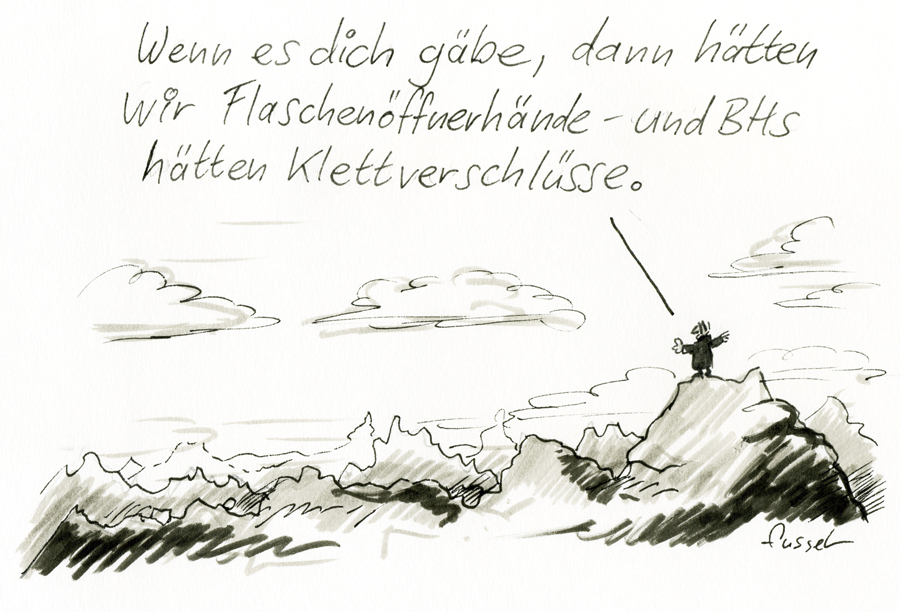 Wenn es dich gäbe, dann hätten
wir Flaschenöffnerhände – und BHs
hätten Klettverschlüsse.
fussel